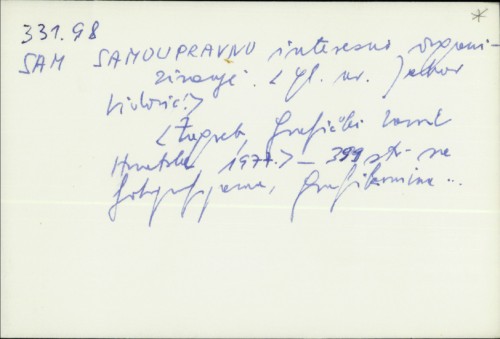 *
331.98
SAM SAMOUPRAVNO interesno organi-
ziranje. <Gl. ur. Jakov
Sirotković>
<Zagreb, Grafički zavod
Hrvatske 1977.> — 399 str. sa
fotografijama, grafikonima ..